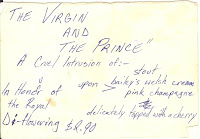 "THE VIRGIN
AND
THE PRINCE"
A Cool Intrusion of:-
stout
In Honor of upon > bailey's welsh cream
the Royal pink champagne
delicately topped with a cherry
De-flowering $2.90